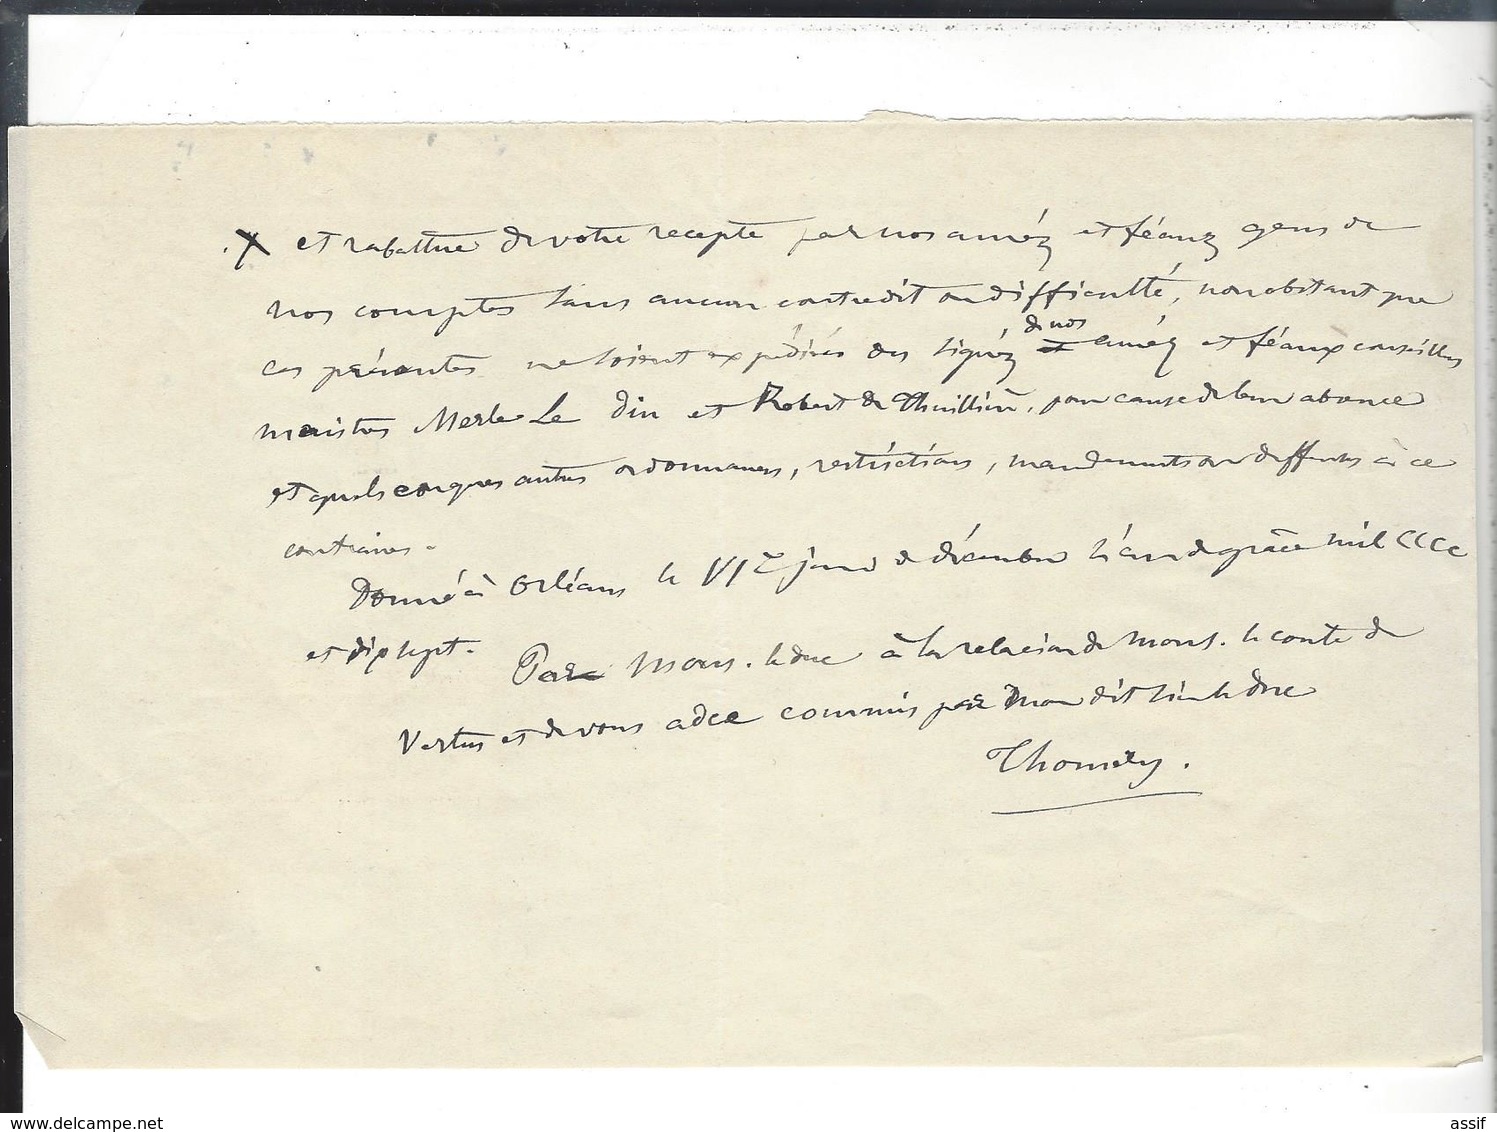 X et rabattue de votre recepte par nos améz et féaux gens de
nos comptes sans aucun contredit ou difficulté, nonobstant que
ces présentes ne soient expédiées ou signéz de nos améz et féaux conseillers
maistres Merle Le Din et Robert de Thuillière, pour cause de leur absence
et quelconques autres ordonnances, restrictions, mandements ou deffenses à ce
contraires.
Donné à Orléans le VIe jour de décembre l'an de grâce mil CCCC
et dix sept.
Par Mons. le duc à la relacion de Mons. le conte de
Vertus et de vous adce commis par mon dit sieur le duc
Thoméry.
www.delcampe.net
assif